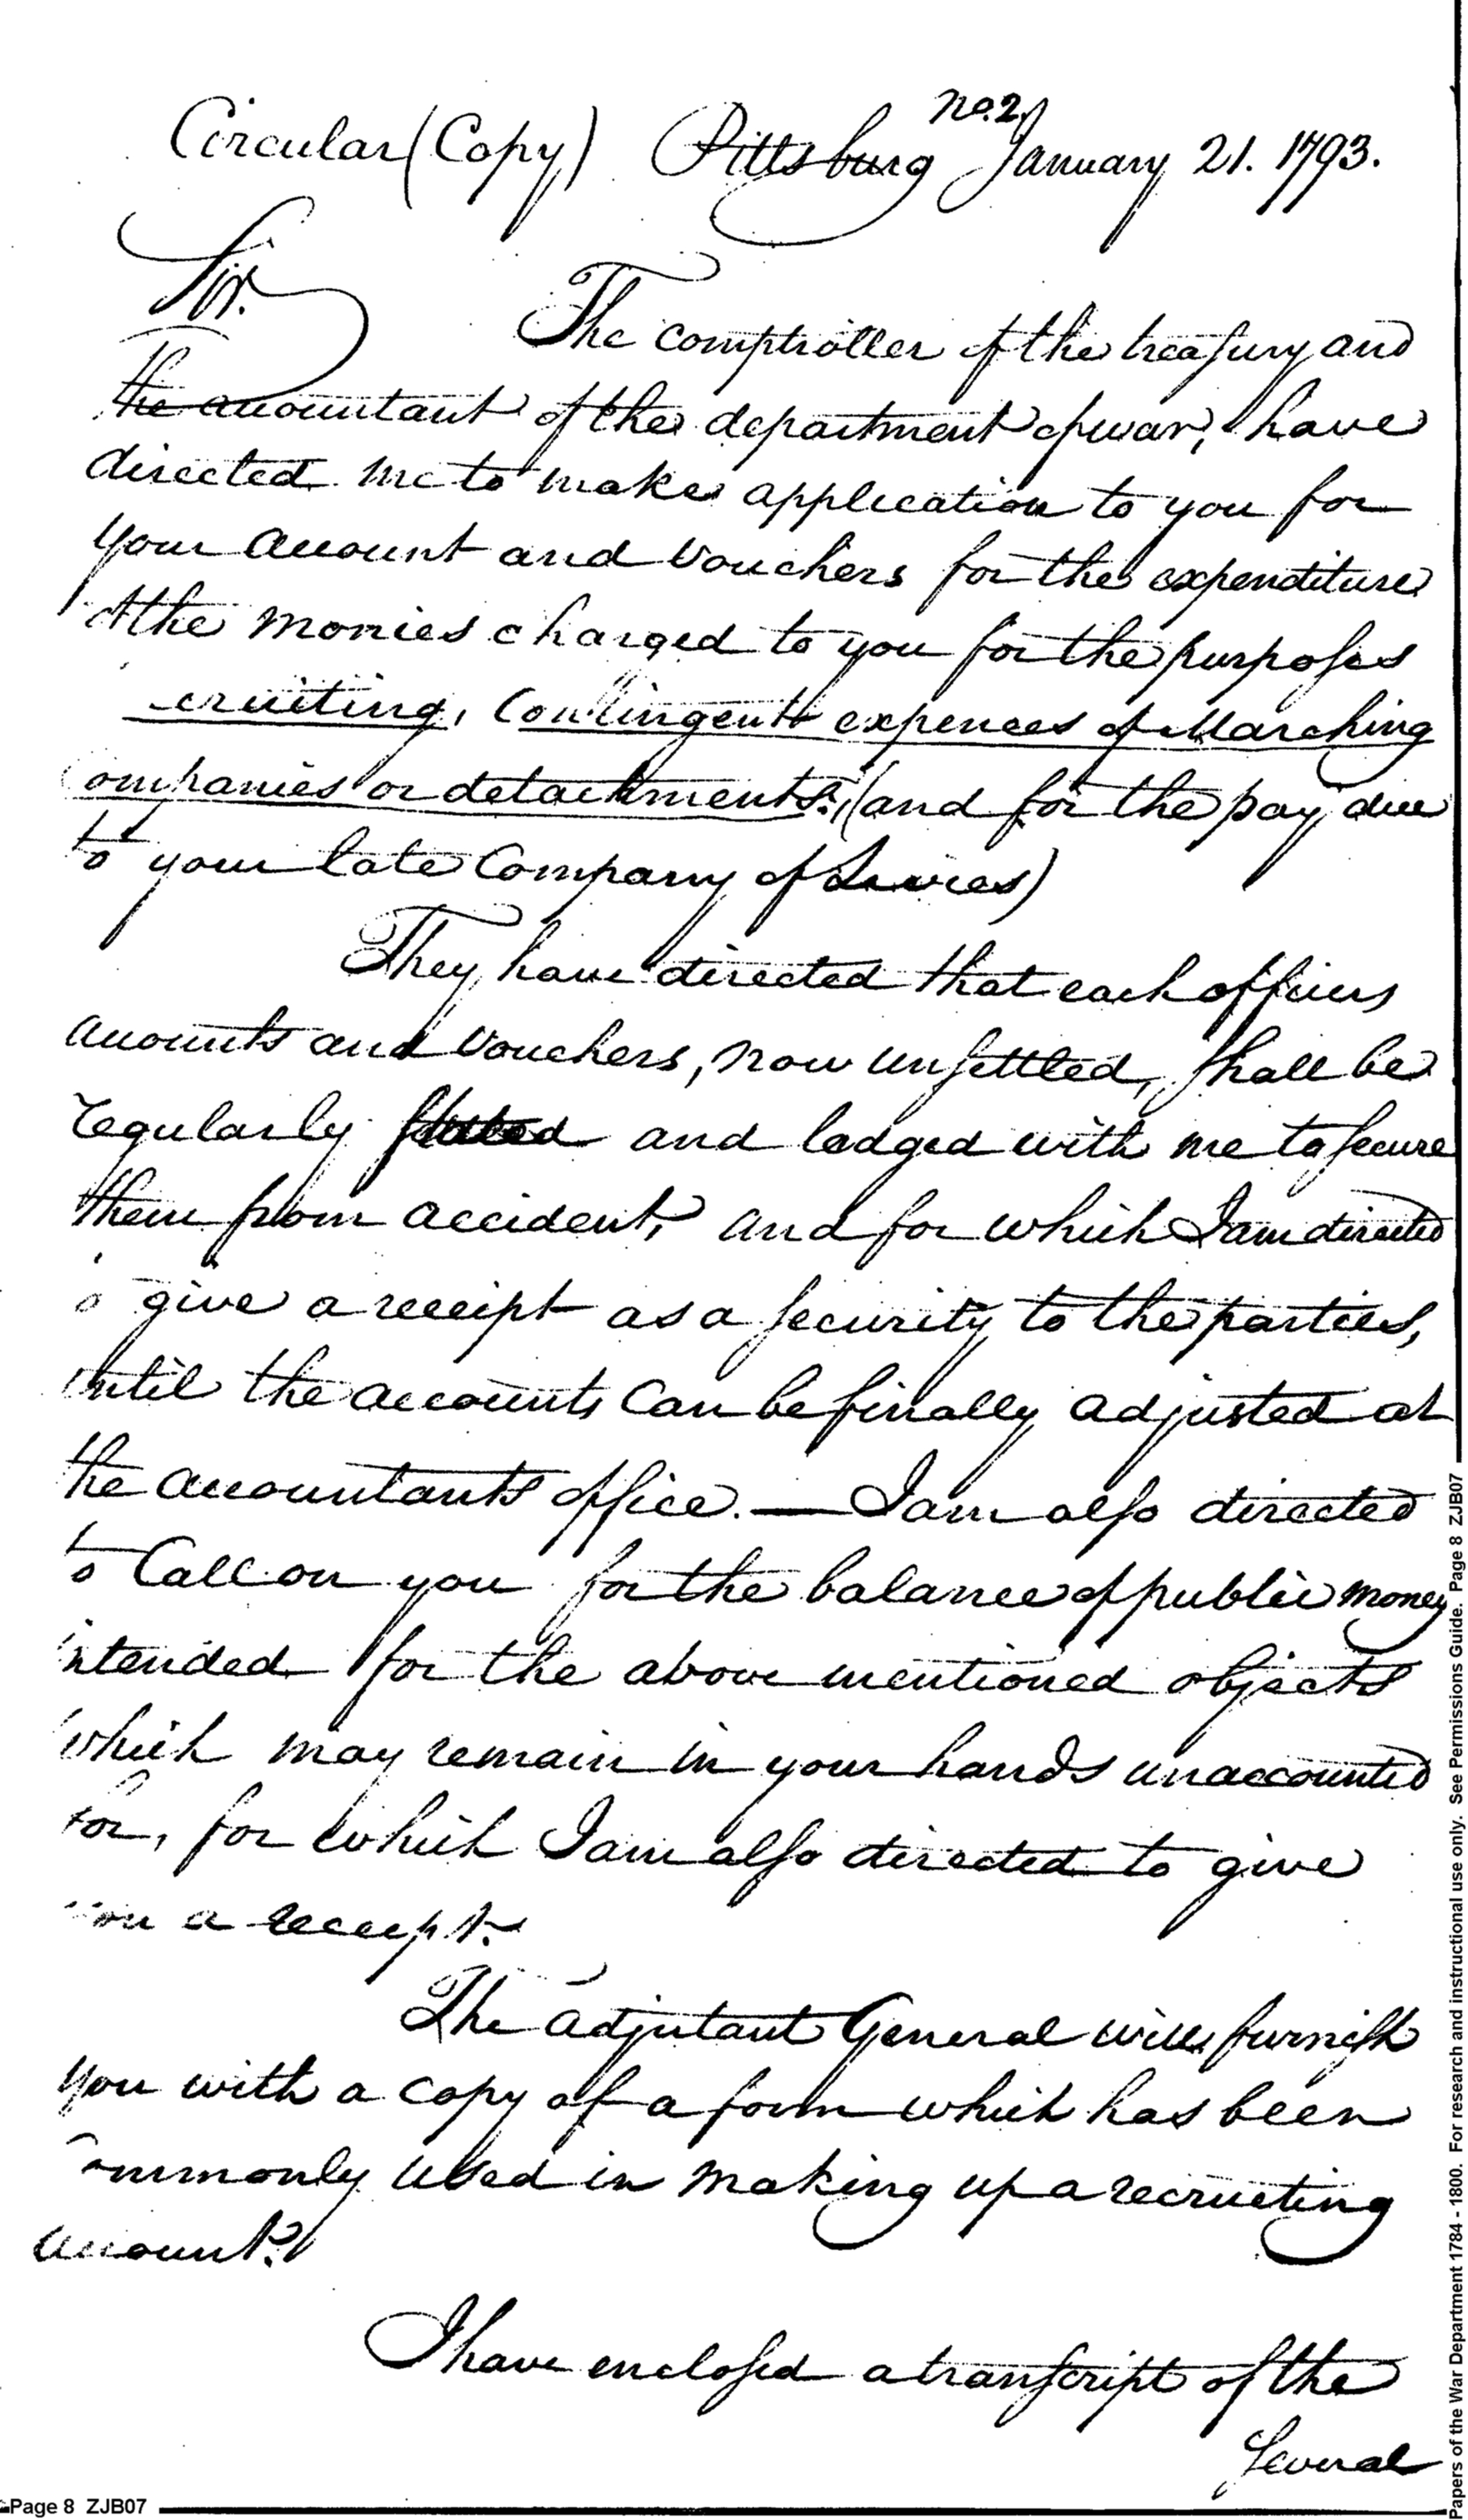 No. 2
Circular (Copy) Pittsburg January 21. 1793.
Sir.
The comptroller of the treasury and
the accountant of the department of war, have
directed me to make application to you for
your account and vouchers for the expenditure
of the monies charged to you for the purposes
cruiting, Contingent expences of Marching
ompanies or detachments. (and for the pay due
to your late Company of Levies)
They have directed that each officers
accounts and vouchers, now unsettled, shall be
regularly stated and lodged with me to secure
them from accident, and for which I am directed
o give a receipt as a security to the parties,
until the accounts can be finally adjusted at
the accountants office. — I am also directed
to Call on you for the balance of public money
intended for the above mentioned objects
which may remain in your hands unaccounted
for, for which I am also directed to give
you a receipt.
The adjutant General will furnish
you with a copy of a form which has been
ommonly used in making up a recruiting
account.
I have enclosed a transcript of the
several
Page 8 ZJB07
Papers of the War Department 1784 - 1800. For research and instructional use only. See Permissions Guide. Page 8 ZJB07